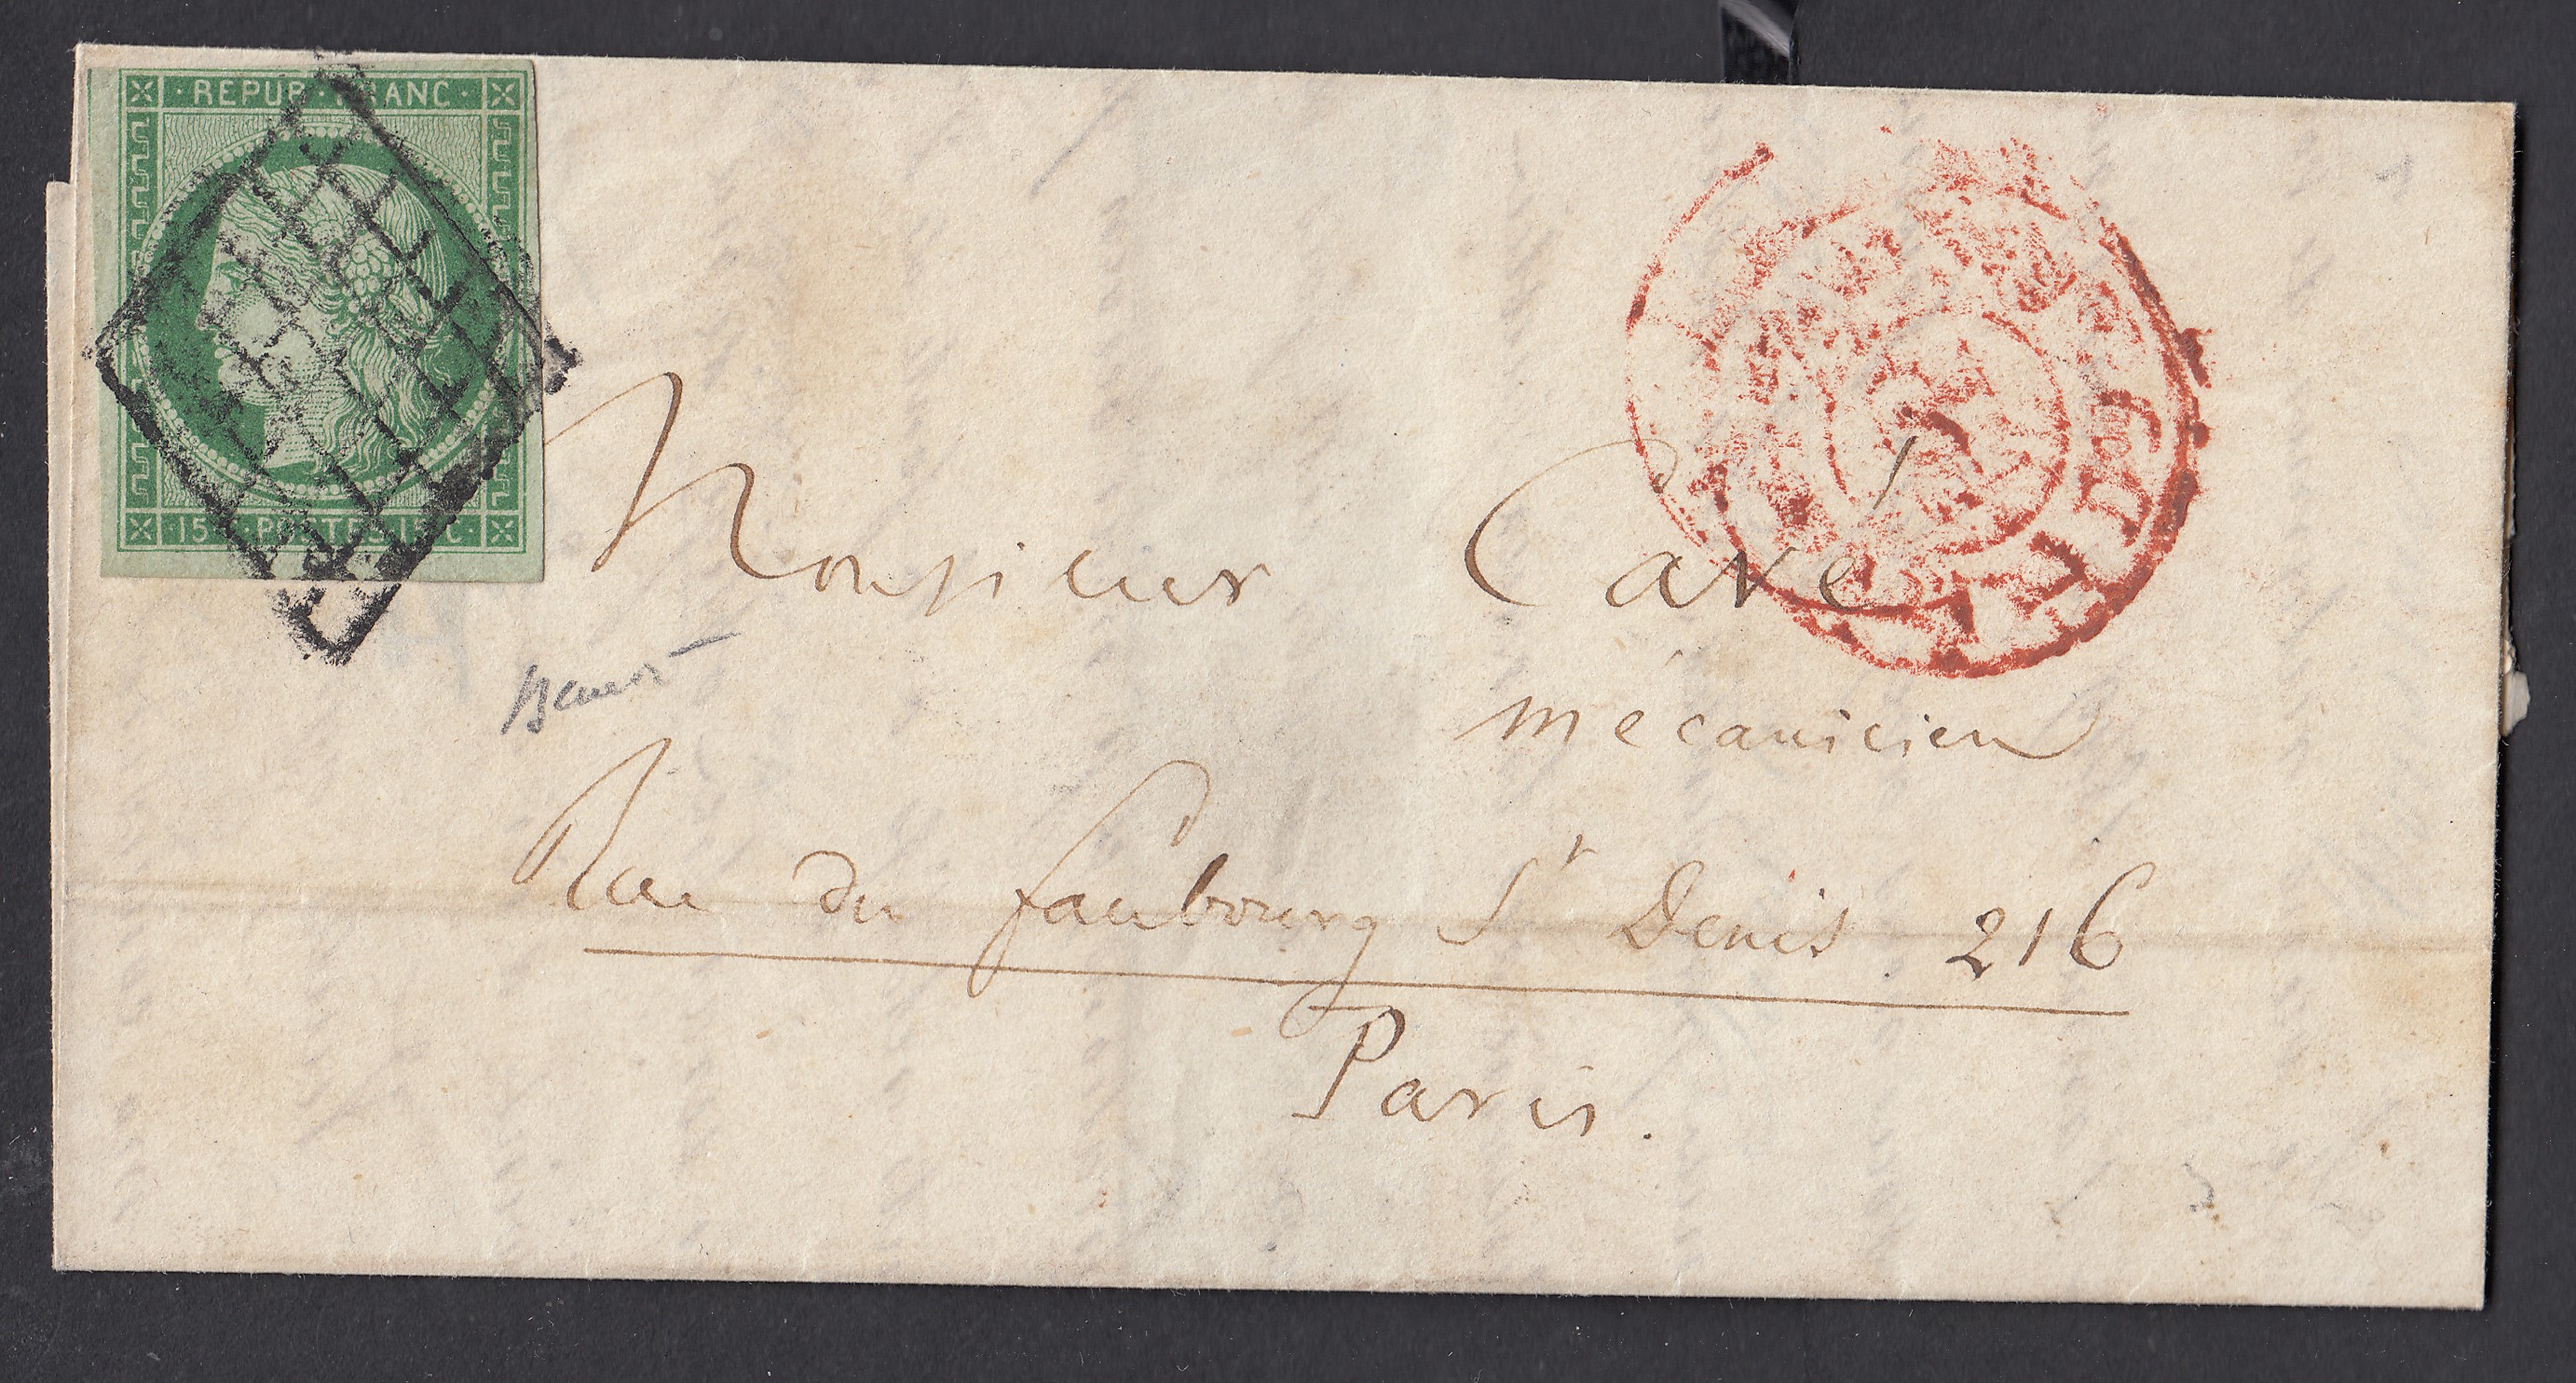 · REPUB · FRANC ·
· 15 C · POSTES · 15 C ·
Monsieur Cavé
mécanicien
Rue du faubourg St Denis 216
Paris.